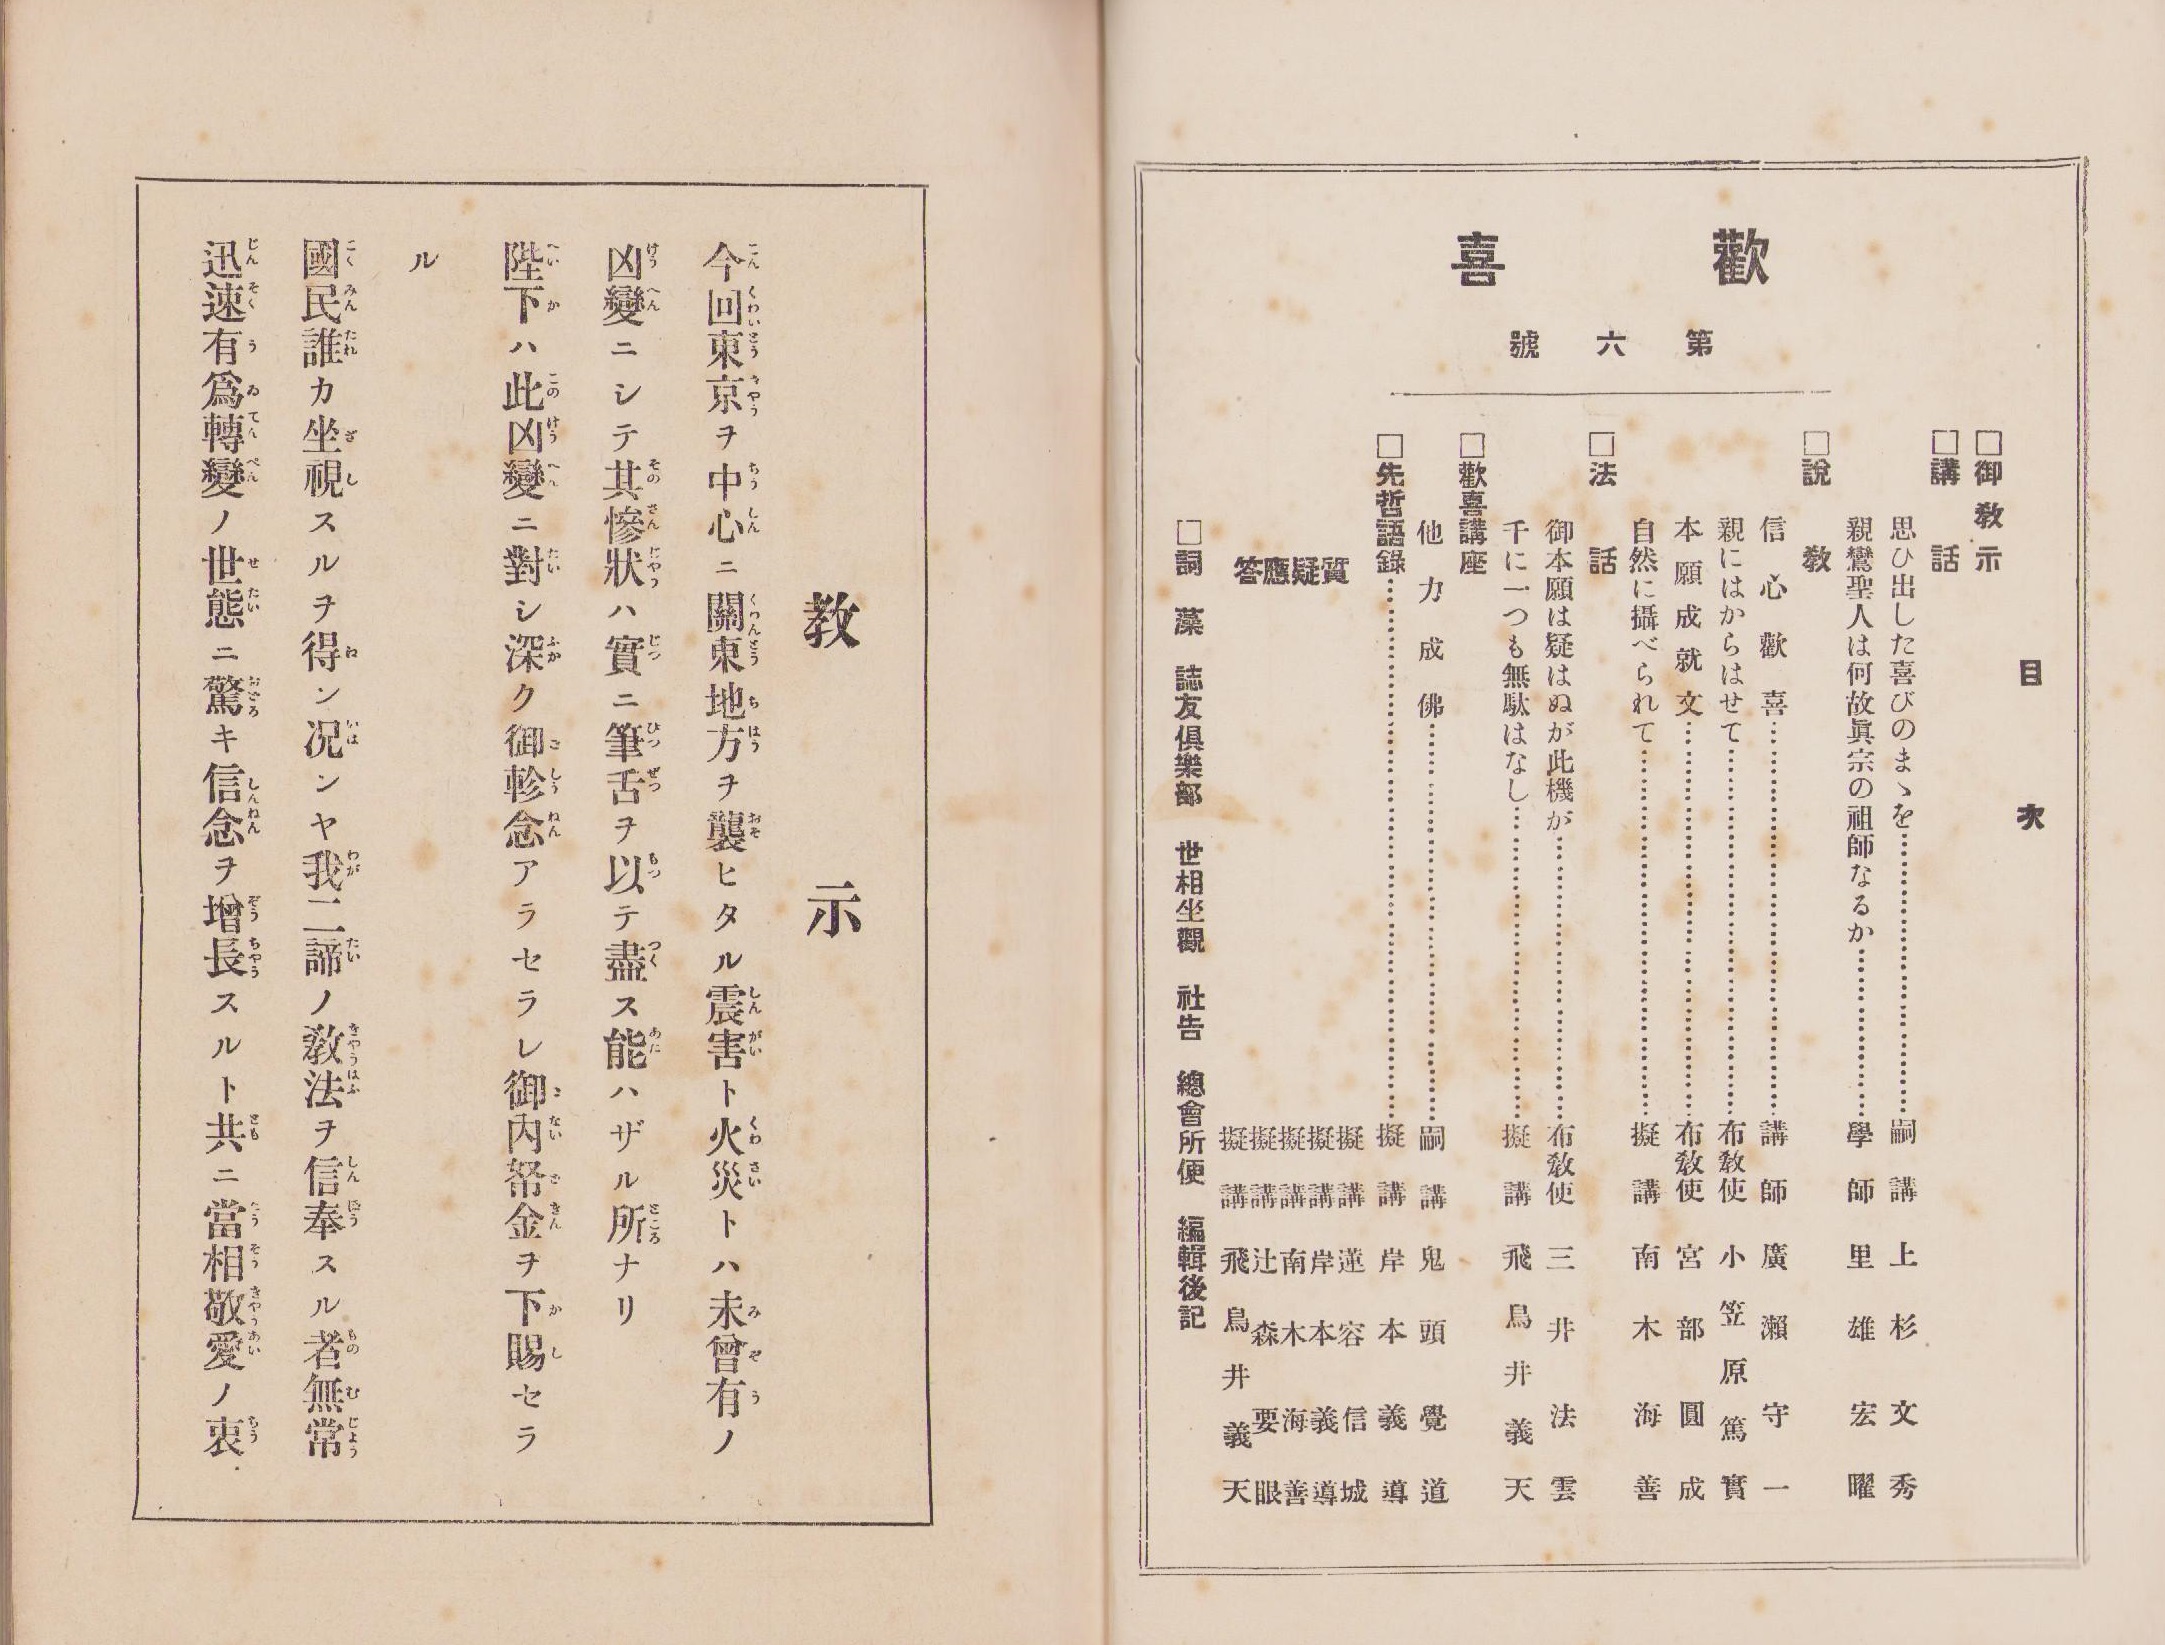 歡喜
第六號
目次
□御教示
□講話
思ひ出した喜びのまゝを……嗣講 上杉文秀
親鸞聖人は何故眞宗の祖師なるか……學師 里雄宏曜
□說教
信心歡喜……講師 廣瀨守一
親にはからはせて……布教使 小笠原篤實
本願成就文……布教使 宮部圓成
自然に攝べられて……擬講 南木海善
□法話
御本願は疑はぬが此機が……布教使 三井法雲
千に一つも無駄はなし……擬講 飛鳥井義天
□歡喜講座
他力成佛……嗣講 鬼頭覺道
□先哲語錄……擬講 岸本義導
質疑應答
擬講 蓮容信城
擬講 岸本義導
擬講 南木海善
擬講 辻森要眼
擬講 飛鳥井義天
□詞藻 誌友俱樂部 世相坐觀 社告 總會所便 編輯後記
教示
今回東京ヲ中心ニ關東地方ヲ襲ヒタル震害ト火災トハ未曾有ノ
凶變ニシテ其慘狀ハ實ニ筆舌ヲ以テ盡ス能ハザル所ナリ
陛下ハ此凶變ニ對シ深ク御軫念アラセラレ御內帑金ヲ下賜セラ
ル
國民誰カ坐視スルヲ得ン况ンヤ我二諦ノ教法ヲ信奉スル者無常
迅速有爲轉變ノ世態ニ驚キ信念ヲ增長スルト共ニ當相敬愛ノ衷